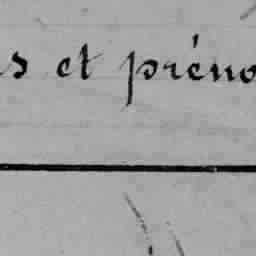 s et préno